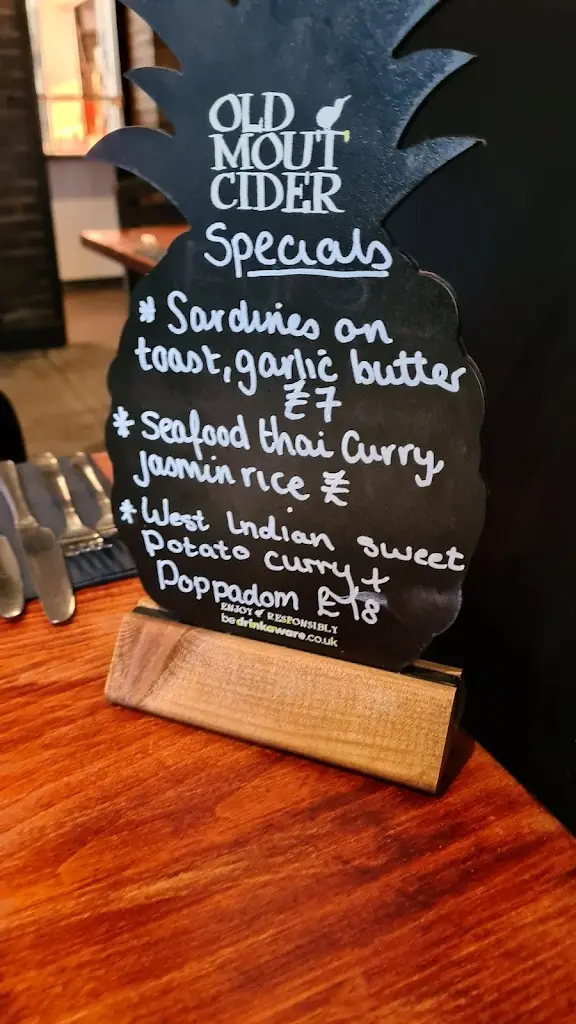 OLD
MOUT
CIDER
Specials
* Sardines on
toast, garlic butter
£7
* Seafood thai curry
Jasmin rice £
* West Indian sweet
Potato curry +
Poppadom £18
ENJOY RESPONSIBLY
bedrinkaware.co.uk